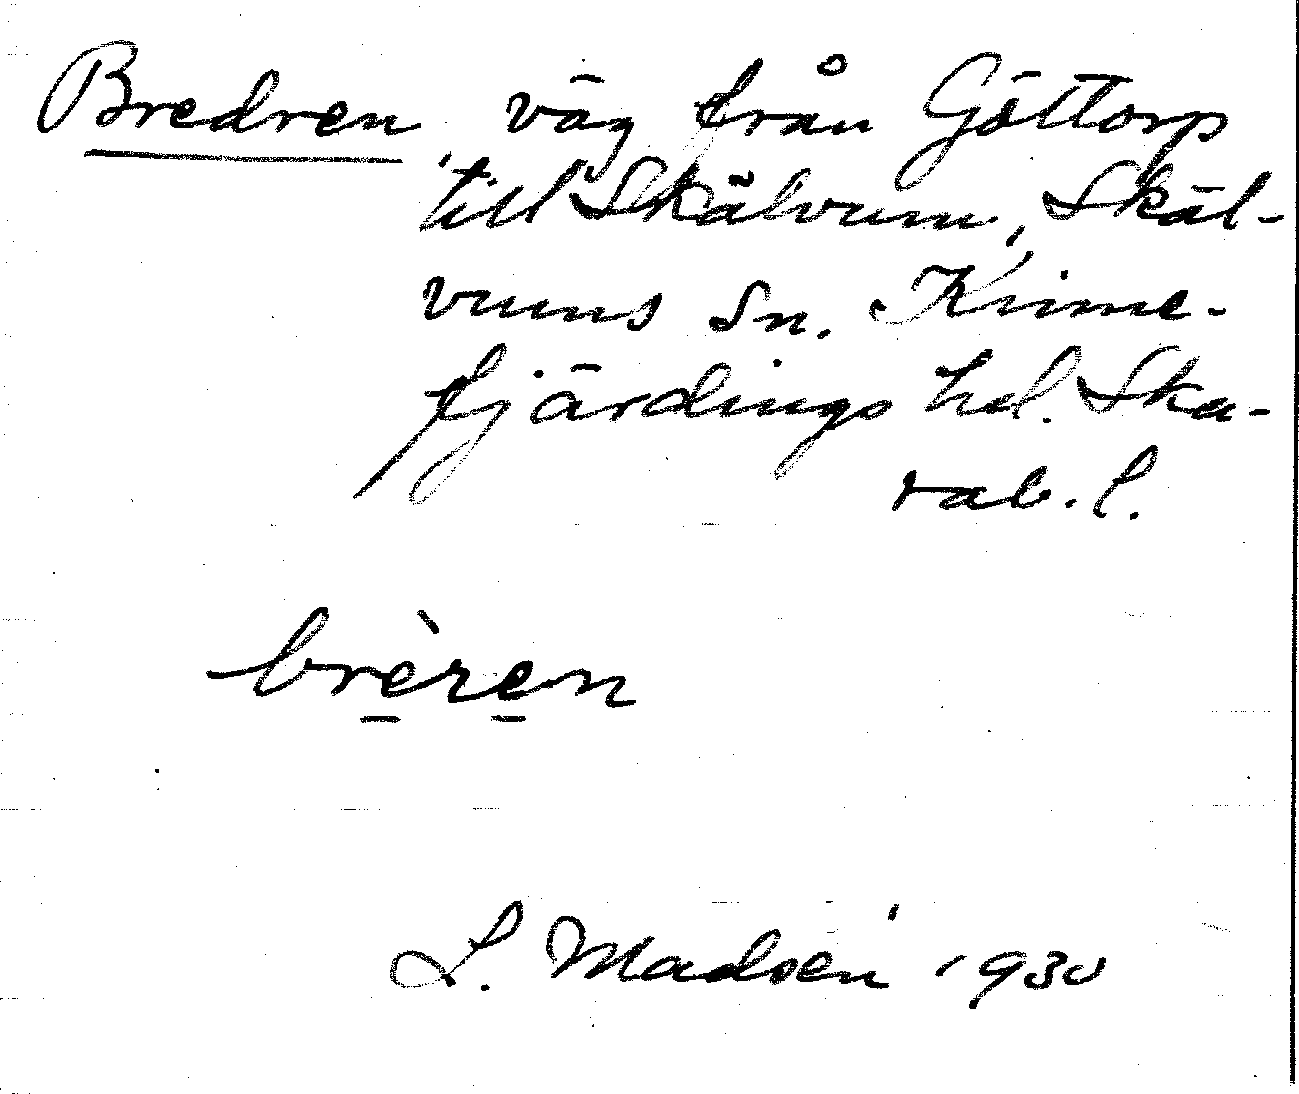 Bredren väg från Göttorp
till Skälvum, Skäl-
vums sn. Kinne-
fjärdings hd. Ska-
rab. l.
brèren
L. Madsén 1930